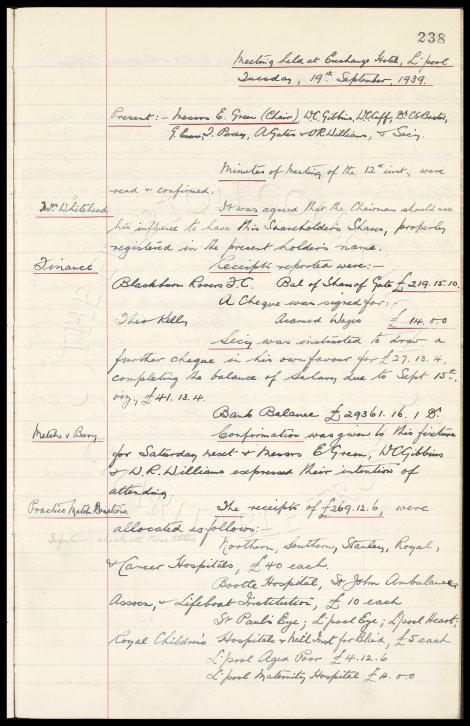 238
Meeting held at Exchange Hotel, L'pool
Tuesday, 19th September, 1939.
Present:- Messrs E. Green (Chair) W.C. Gibbins, W.C. Cuff, Dr C.S. Baxter,
G. Evans, T. Percy, A. Gates & W.R. Williams, & Secy.
Minutes of Meeting of the 12th inst., were
read & confirmed.
Whitehead
It was agreed that the Chairman should use
his influence to have this Shareholder's Shares, properly
registered in the present holder's name.
Finance
Receipts reported were:-
Blackburn Rovers F.C. Bal of Share of Gate £219.15.10.
A Cheque was signed for:-
Theo Kelly Accrued Wages £14.0.0
Secy was instructed to draw a
further cheque in his own favour for £27.13.4,
completing the balance of Salary due to Sept 15th,
viz., £41.13.4.
Bank Balance £29361.16.1 Dr.
Match v Bury
Confirmation was given to this fixture
for Saturday next & Messrs E Green, W.C. Gibbins
& W.R. Williams expressed their intention of
attending
Practice Match Donations
The receipts of £269.12.6, were
allocated as follows:-
Northern, Southern, Stanley, Royal,
& Cancer Hospitals, £40 each.
Bootle Hospital, St John Ambulance
Assocn, & Lifeboat Institution, £10 each
St Paul's Eye; L'pool Eye; L'pool Heart;
Royal Children's Hospital & Natl. Inst. for Blind, £5 each
L'pool Aged Poor £4.12.6
L'pool Maternity Hospital £4.0.0